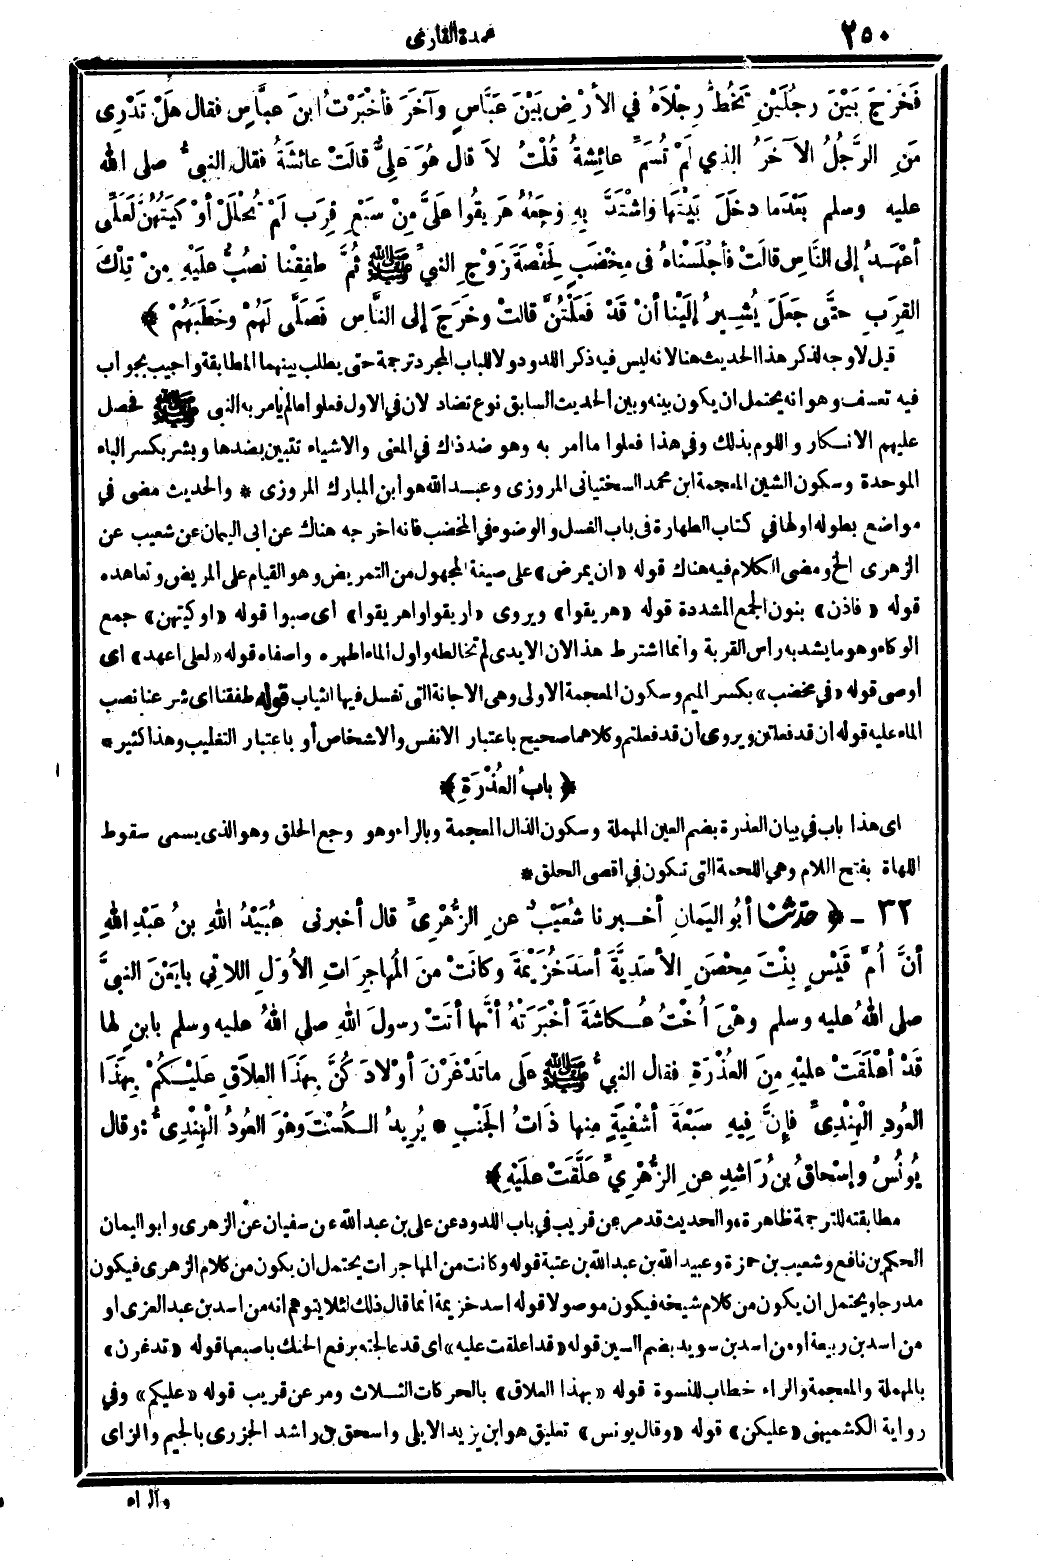 ٢٥٠
عمدة القارئ
فَخَرَجَ بَيْنَ رجُلَيْنِ تَخُطُّ رِجْلاَهُ في الأرْضِ بَيْنَ عَبَّاسٍ وآخَرَ فأخْبَرْتُ ابنَ عبَّاسٍ فقال هَلْ تَدْرِى
مَنِ الرَّجُلُ الآخَرُ الذي لَمْ تُسَمِّ عائِشةُ قُلْتُ لاَ قال هُوَ عَلِيٌّ قالَتْ عائِشَةُ فقال النبىُّ صلى الله
عليه وسلم بَعْدَما دخَلَ بَيْتَها واشْتَدَّ بِهِ وجَعُهُ هَرِيقُوا عَلَيَّ مِنْ سَبْعِ قِرَبٍ لَمْ تُحْلَلْ أوْكِيَتُهُنَّ لَعَلِّى
أعْهَدُ إلى النَّاسِ قالَتْ فأجْلَسْناهُ فى مِخْضَبٍ لِحَفْصَةَ زَوْجِ النبيِّ ﷺ ثُمَّ طفِقْنا نصُبُّ علَيْهِ مِنْ تِلْكَ
القِرَبِ حتَّى جَعَلَ يُشِيرُ إلَيْنا أنْ قَدْ فَعَلْتُنَّ قالتْ وخَرَجَ إلى النَّاسِ فَصَلَّى لَهُمْ وخَطَبَهُمْ ﴾
قيل لا وجه لذكر هذا الحديث هنا لانه ليس فيه ذكر اللدود ولا للباب المجرد ترجمة حتى يطلب بينهما المطابقة واجيب بجواب
فيه تعسف وهو انه يحتمل ان يكون بينه وبين الحديث السابق نوع تضاد لان في الاول فعلوا مالم يامر به النبى ﷺ فحصل
عليهم الانكار واللوم بذلك وفي هذا فعلوا ما امر به وهو ضد ذاك في المعنى والاشياء تتبين بضدها وبشر بكسر الباء
الموحدة وسكون الشين المعجمة ابن محمد السختيانى المروزى وعبد الله هو ابن المبارك المروزى * والحديث مضى في
مواضع بطوله اولها في كتاب الطهارة فى باب الغسل والوضوء في المخضب فانه اخرجه هناك عن ابى اليمان عن شعيب عن
الزهرى الخ ومضى الكلام فيه هناك قوله «ان يمرض» على صيغة المجهول من التمريض وهو القيام على المريض وتعاهده
قوله «فاذن» بنون الجمع المشددة قوله «هريقوا» ويروى «اريقوا واهريقوا» اى صبوا قوله «اوكيتهن» جمع
الوكاء وهو ما يشد به راس القربة وانما اشترط هذا لان الايدى لم تخالطه واول الماء اطهره واصفاه قوله «لعلى اعهد» اى
أوصى قوله «في مخضب» بكسر الميم وسكون المعجمة الاولى وهى الاجانة التى تغسل فيها الثياب قوله طفقنا اى شرعنا نصب
الماء عليه قوله ان قد فعلتن ويروى أن قد فعلتم وكلاهما صحيح باعتبار الانفس والاشخاص أو باعتبار التغليب وهذا كثير *
﴿ بابُ العُذْرَةِ ﴾
اى هذا باب في بيان العذرة بضم العين المهملة وسكون الذال المعجمة وبالراء وهو وجع الحلق وهو الذى يسمى سقوط
اللهاة بفتح اللام وهي اللحمة التى تكون في اقصى الحلق *
٣٢ ـ ﴿ حدثنا أبُو اليَمانِ أخبرنا شُعَيْبٌ عنِ الزُّهْرِىِّ قال أخبرنى عُبَيْدُ اللهِ بنُ عَبْدِ اللهِ
أنَّ أُمَّ قَيْسٍ بِنْتَ مِحْصَنٍ الأسَدِيَّةَ أسَدَ خُزَيْمَةَ وكانَتْ مِنَ المُهاجِرَاتِ الأُوَلِ اللاتِي بايَعْنَ النبيَّ
صلى اللهُ عليه وسلم وهْىَ اُخْتُ عُكاشَةَ أخْبَرَتْهُ أنَّها أتَتْ رسولَ اللهِ صلي اللهُ عليه وسلم بابنٍ لها
قَدْ أعْلَقَتْ علَيْهِ مِنَ العُذْرَةِ فقال النبيُّ ﷺ عَلَى ما تَدْغَرْنَ أوْلادَكُنَّ بِهَذَا العِلاَقِ عَلَيْكُمْ بِهَذَا
العُودِ الْهِنْدِىِّ فإنَّ فِيهِ سَبْعَةَ أشْفِيَةٍ مِنها ذَاتُ الجَنْبِ * يُرِيدُ الكُسْتَ وهْوَ العُودُ الْهِنْدِىُّ: وقال
يُونُسُ وإسْحاقُ بنُ رَاشِدٍ عنِ الزُّهْرِيِّ عَلَّقَتْ علَيْهِ ﴾
مطابقته للترجمة ظاهرة والحديث قد مر عن قريب في باب اللدود عن على بن عبد الله عن سفيان عن الزهرى وابو اليمان
الحكم بن نافع وشعيب بن حمزة وعبيد الله بن عبد الله بن عتبة قوله وكانت من المهاجرات يحتمل ان يكون من كلام الزهرى فيكون
مدرجا ويحتمل ان يكون من كلام شيخه فيكون موصولا قوله اسد خزيمة انما قال ذلك لئلا يتوهم انه من اسد بن عبد العزى او
من اسد بن ربيعة او من اسد بن سويد بضم السين قوله «قد اعلقت عليه» اى قد عالجته برفع الحنك باصبعها قوله «تدغرن»
بالمهملة والمعجمة والراء خطاب للنسوة قوله «بهذا العلاق» بالحركات الثلاث ومر عن قريب قوله «عليكم» وفي
رواية الكشميهنى «عليكن» قوله «وقال يونس» تعليق هو ابن يزيد الايلى واسحق بن راشد الجزرى بالجيم والزاى
والراء